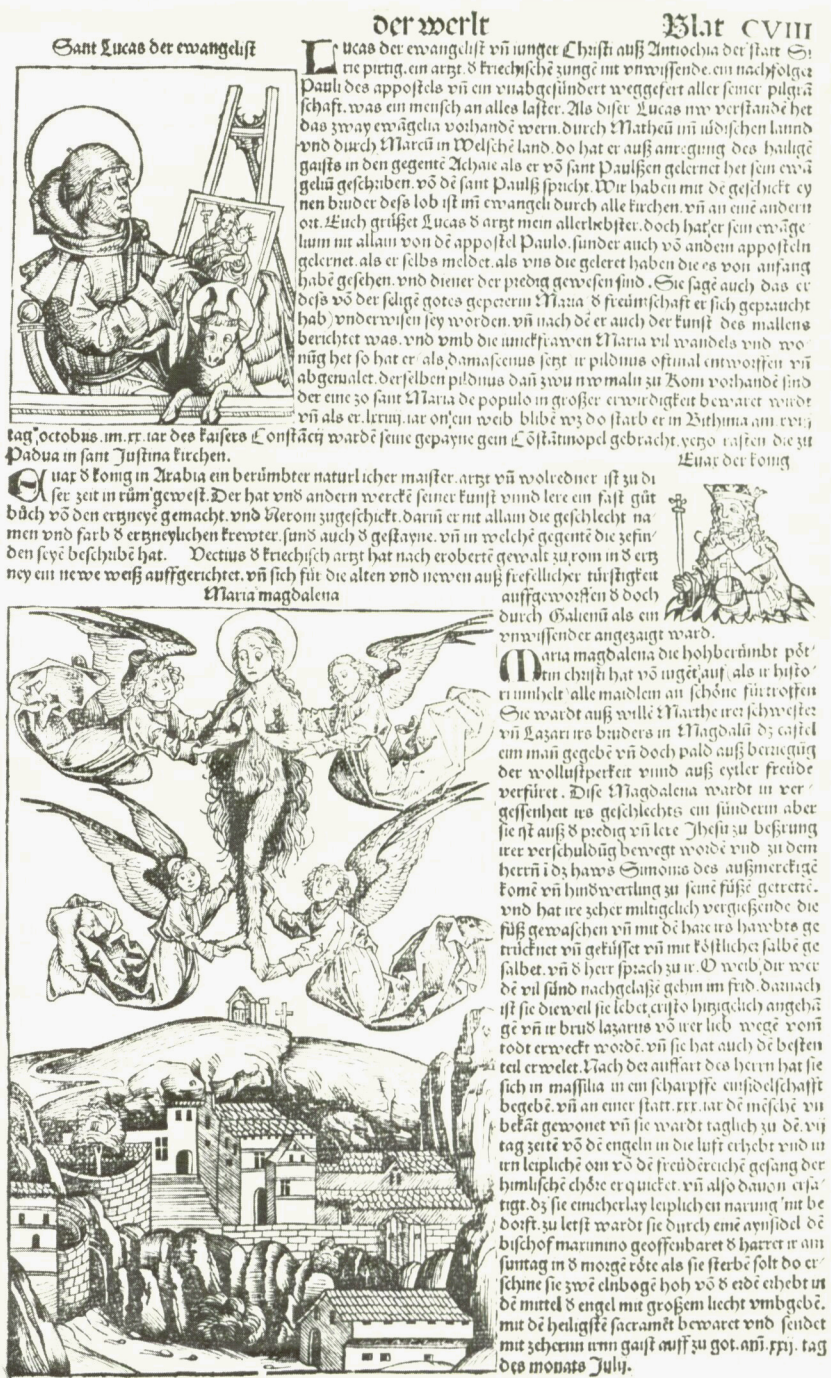 der werlt
Blat CVIII
Sant Lucas der ewangelist
Lucas der ewangelist vñ iunger Christi auß Antiochia der statt Si
rie pürtig. ein artzt. d̾ kriechischē zungē nit vnwissende. ein nachfolger
Pauli des appostels vñ ein vnabgesündert weggefert aller seiner pilgrā
schaft. was ein mensch an alles laster. Als diser Lucas nw verstandē het
das zway ewāgelia vorhandē wern. durch Matheū im iüdischen lannd
vnd durch Marcū in Welschē land. do hat er auß anregung des hailigē
gaists in den gegentē Achaie als er vō sant Paulßen gelernet het sein ewā
geliū geschriben. vō dē sant Paulß spricht. Wir haben mit dē geschickt ey
nen bruder deß lob ist im ewangeli durch alle kirchen. vñ an einē andern
ort. Euch grüßet Lucas d̾ artzt mein allerliebster. doch hat er sein ewāge
lium nit allain von dē appostel Paulo. sunder auch vō andern apposteln
gelernet. als er selbs meldet. als vns die geleret haben die es von anfang
habē gesehen. vnd diener der predig gewesen sind. Sie sagē auch das er
deß vō der selige gotes gepererin Maria d̾ freüntschaft er sich gepraucht
hab) vnderwisen sey worden. vñ nach dē er auch der kunst des mallens
berichtet was. vnd vmb die iunckfrawen Maria vil wandels vnd wo
nüg het so hat er als damascenus setzt ir pildnus oftmal entworffen vñ
abgemalet. derselben pildnus dañ zwu nw maln zu Rom vorhandē sind
der eine zo sant Maria de populo in großer erwirdigkeit bewaret wirdt
vñ als er. lxxiiij. iar on ein weib blibē wz do starb er in Bithinia am. xviij
tag octobris. im. xx. iar des kaisers Constācij wardē seine gepayne gein Cōstātinopel gebracht. yetzo rasten die zu
Padua in sant Justina kirchen.
Euax der konig
Euax d̾ konig in Arabia ein berümbter naturlicher maister. artzt vñ wolredner ist zu di
ser zeit in rüm gewest. Der hat vnd andern werckē seiner kunst vnnd lere ein fast gūt
bůch vō den ertzneyē gemacht. vnd Neroni zugeschickt. darin er nit allain die geschlecht na
men vnd farb d̾ ertzneylichen krewter. sund auch d̾ gestayne. vñ in welchē gegentē die zefin
den seyē beschribē hat. Vectius d̾ kriechisch artzt hat nach erobertē gewalt zu rom in d̾ ertz
ney ein newe weiß auffgerichtet. vñ sich für die alten vnd newen auß frefellicher türstigkeit
auffgeworffen d̾ doch
durch Galienū als ein
vnwissender angezaigt ward.
Maria magdalena
Maria magdalena die hohberümbt pōt
tin christi hat vō iuget auf (als ir histo
ri innhelt) alle maidlein an schöne fürtroffen
Sie wardt auß willē Marthe irer schwester
vñ Lazari irs bruders in Magdalū dz castel
eim mañ gegebē vñ doch pald auß bewegūg
der wollustperkeit vnnd auß eytler freüde
verfüret. Dise Magdalena wardt in ver
gessenheit irs geschlechts ein sünderin aber
sie ist auß d̾ predig vñ lere Jhesu zu beßrung
irer verschuldūg bewegt wordē vnd zu dem
herrñ i dz haws Simonis des außmerckigē
komē vñ hindwertling zu seinē füßē getrettē.
vnd hat ire zeher miltigclich vergießende die
füß gewaschen vñ mit dē hare irs hawbts ge
trücknet vñ geküsset vñ mit köstlicher salbē ge
salbet. vñ d̾ herr sprach zu ir. O weib dir wer
dē vil sünd nachgelaßē gehin im frid. darnach
ist sie dieweil sie lebet cristo hitzigclich angehā
gē vñ ir brud̾ lazarus vō irer lieb wegē vom
todt erweckt wordē. vñ sie hat auch dē besten
teil erwelet. Nach der auffart des herrn hat sie
sich in massilia in ein scharpffe einsidelschafft
begebē. vñ an einer statt. xxx. iar dē mēschē vn
bekāt gewonet vñ sie wardt taglich zu dē. vij
tag zeitē vō dē engeln in die luft erhebt vnd in
irn leiplichē orn vō dē freüdēreichē gesang der
himlischē chöre erquicket. vñ also dauon ersa
tigt. dz sie einicherlay leiplichen narung nit be
dorft. zu letst wardt sie durch einē aynsidel dē
bischof maximino geoffenbaret d̾ harret ir am
suntag in d̾ morgē röte als sie sterbē solt do er
schine sie zwē elnbogē hoh vō d̾ erdē erhebt in
dē mittel d̾ engel mit großem liecht vmbgebē.
mit dē heiligstē sacramēt bewaret vnd sendet
mit zehern irnn gaist auff zu got. am. xxij. tag
des monats July.